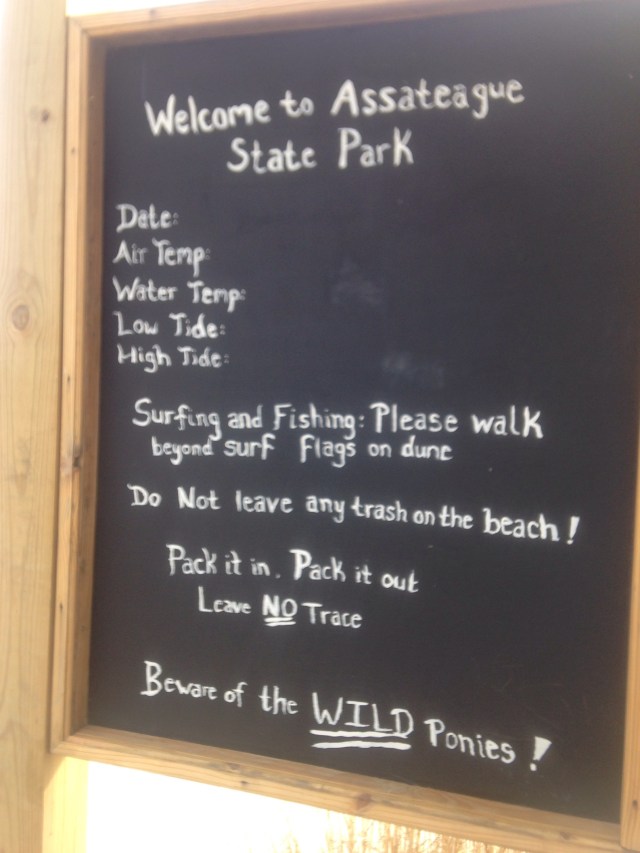 Welcome to Assateague
State Park
Date:
Air Temp:
Water Temp:
Low Tide:
High Tide:
Surfing and Fishing: Please walk
beyond surf flags on dune
Do Not leave any trash on the beach!
Pack it in. Pack it out
Leave NO Trace
Beware of the WILD Ponies!